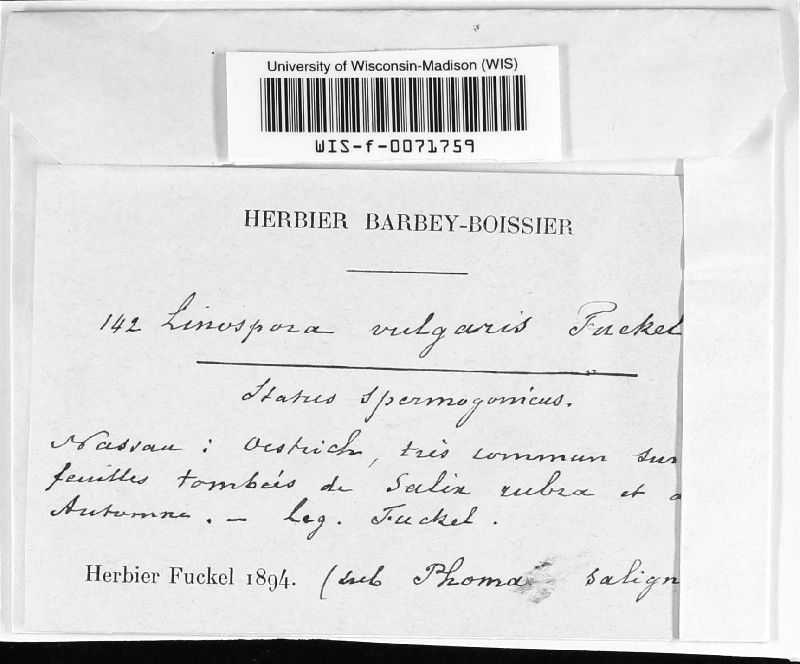 University of Wisconsin-Madison (WIS)
WIS-f-0071759
HERBIER BARBEY-BOISSIER
142 Linospora vulgaris Fuckel
Status spermogonicus.
Nassau : Oestrich, très commun sur
feuilles tombées de Salix rubra et a
Automne. — leg. Fuckel.
Herbier Fuckel 1894. (sub Phoma salign